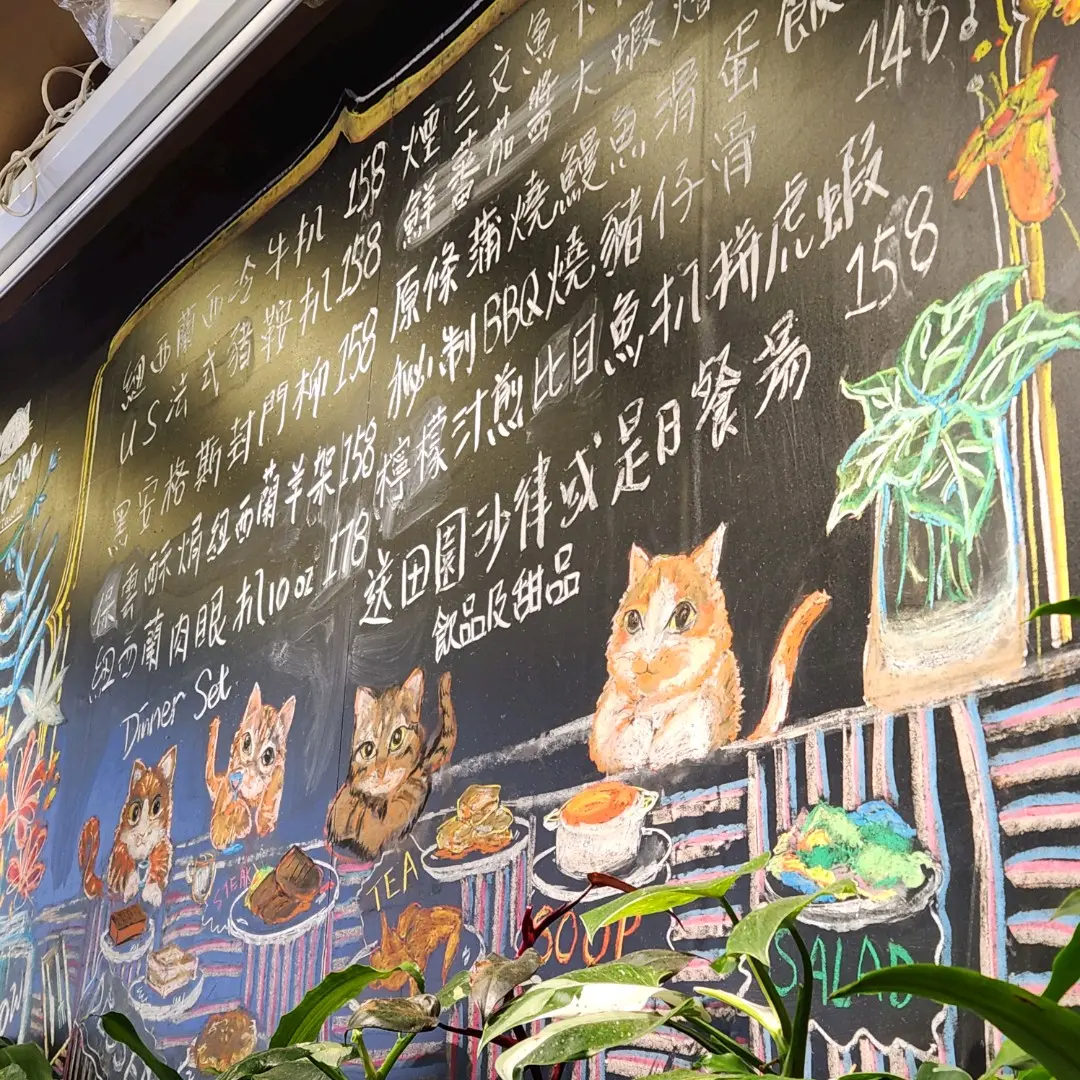 紐西蘭西冷牛扒 158
US法式豬鞍扒 158
黑安格斯封門柳 158
燒雲酥焗紐西蘭羊架 158
紐西蘭肉眼扒 10 oz 178
Dinner Set
煙三文魚
鮮蕃茄醬大蝦
原條蒲燒鰻魚滑蛋飯 148
秘制BBQ燒豬仔滑
檸檬汁煎比目魚扒拼虎蝦 158
送田園沙律或是日餐湯
飲品及甜品
STEAK
TEA
SOUP
SALAD